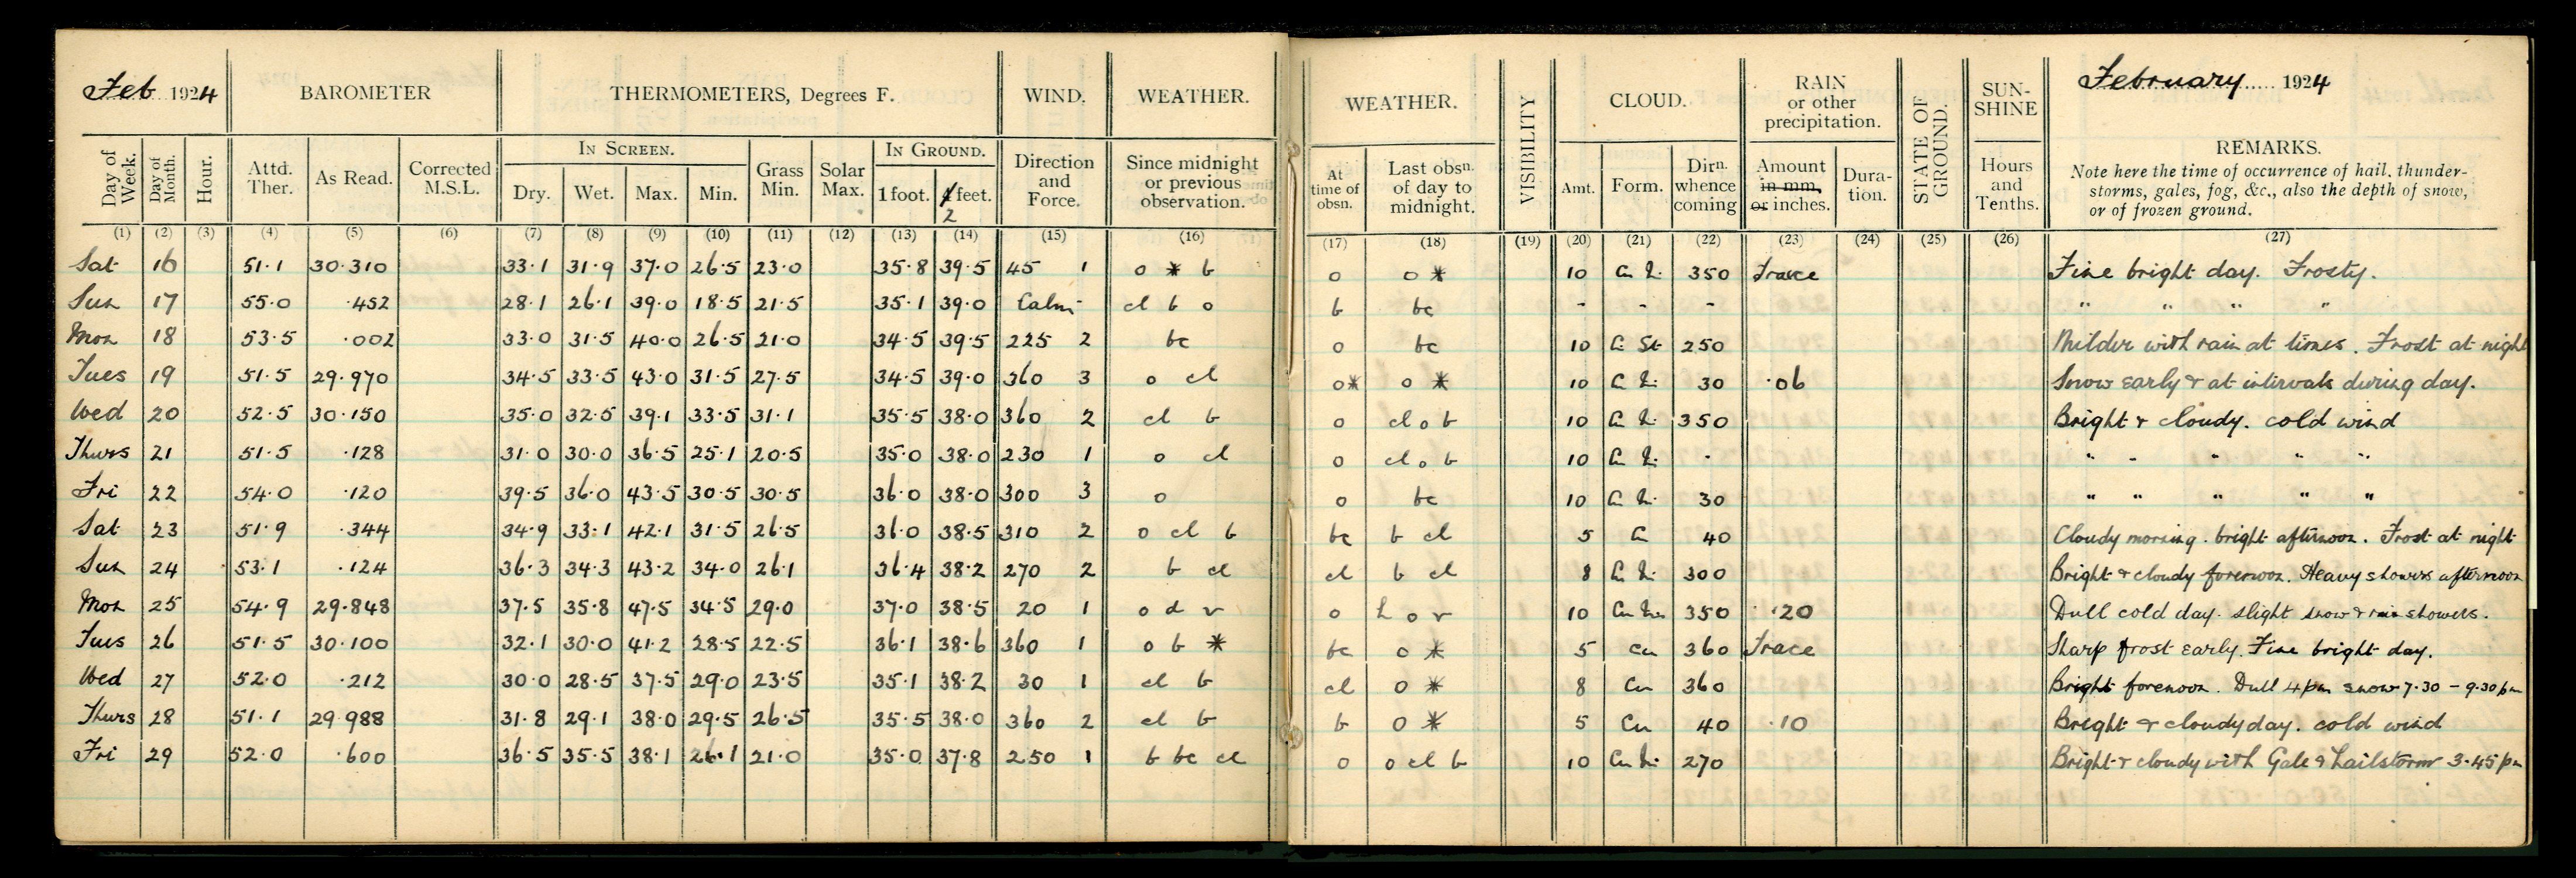 Feb 1924 BAROMETER THERMOMETERS, Degrees F. WIND. WEATHER.
Day of Week. Day of Month. Hour. Attd. Ther. As Read. Corrected M.S.L. IN SCREEN. Dry. Wet. Max. Min. Grass Min. Solar Max. IN GROUND. 1 foot. 4 feet. 2 Direction and Force. Since midnight or previous observation.
(1) (2) (3) (4) (5) (6) (7) (8) (9) (10) (11) (12) (13) (14) (15) (16)
Sat 16 51.1 30.310 33.1 31.9 37.0 26.5 23.0 35.8 39.5 45 1 o * b
Sun 17 55.0 .452 28.1 26.1 39.0 18.5 21.5 35.1 39.0 Calm cl b o
Mon 18 53.5 .002 33.0 31.5 40.0 26.5 21.0 34.5 39.5 225 2 bc
Tues 19 51.5 29.970 34.5 33.5 43.0 31.5 27.5 34.5 39.0 360 3 o cl
Wed 20 52.5 30.150 35.0 32.5 39.1 33.5 31.1 35.5 38.0 360 2 cl b
Thurs 21 51.5 .128 31.0 30.0 36.5 25.1 20.5 35.0 38.0 230 1 o cl
Fri 22 54.0 .120 39.5 36.0 43.5 30.5 30.5 36.0 38.0 300 3 o
Sat 23 51.9 .344 34.9 33.1 42.1 31.5 26.5 36.0 38.5 310 2 o cl b
Sun 24 53.1 .124 36.3 34.3 43.2 34.0 26.1 36.4 38.2 270 2 b cl
Mon 25 54.9 29.848 37.5 35.8 47.5 34.5 29.0 37.0 38.5 20 1 o d r
Tues 26 51.5 30.100 32.1 30.0 41.2 28.5 22.5 36.1 38.6 360 1 o b *
Wed 27 52.0 .212 30.0 28.5 37.5 29.0 23.5 35.1 38.2 30 1 cl b
Thurs 28 51.1 29.988 31.8 29.1 38.0 29.5 26.5 35.5 38.0 360 2 cl b
Fri 29 52.0 .600 36.5 35.5 38.1 26.1 21.0 35.0 37.8 250 1 b bc cl
WEATHER. VISIBILITY CLOUD. RAIN or other precipitation. STATE OF GROUND. SUN-SHINE February 1924
At time of obsn. Last obsn. of day to midnight. Amt. Form. Dirn. whence coming Amount in mm. or inches. Duration. Hours and Tenths. REMARKS.
Note here the time of occurrence of hail, thunder-
storms, gales, fog, &c., also the depth of snow,
or of frozen ground.
(17) (18) (19) (20) (21) (22) (23) (24) (25) (26) (27)
o o * 10 Cu Ni 350 Trace Fine bright day. Frosty.
b bc - - - " " " "
o bc 10 Ci St 250 Milder with rain at times. Frost at night
o* o * 10 C Ni 30 .06 Snow early & at intervals during day.
o cl o b 10 C Ni 350 Bright & cloudy. cold wind
o cl o b 10 Cu Ni - " " " " "
o bc 10 C Ni 30 " " " " "
bc b cl 5 C 40 Cloudy morning. bright afternoon. Frost at night
cl b cl 8 C Ni 300 Bright & cloudy forenoon. Heavy showers afternoon
o h o r 10 Cu Ni 350 .20 Dull cold day. slight snow & rain showers.
bc o * 5 Cu 360 Trace Sharp frost early. Fine bright day.
cl o * 8 Cu 360 Bright forenoon. Dull 4pm snow 7.30 - 9.30pm
b o * 5 Cu 40 .10 Bright & cloudy day. cold wind
o o cl b 10 Cu Ni 270 Bright & cloudy with Gale & hailstorm 3.45pm